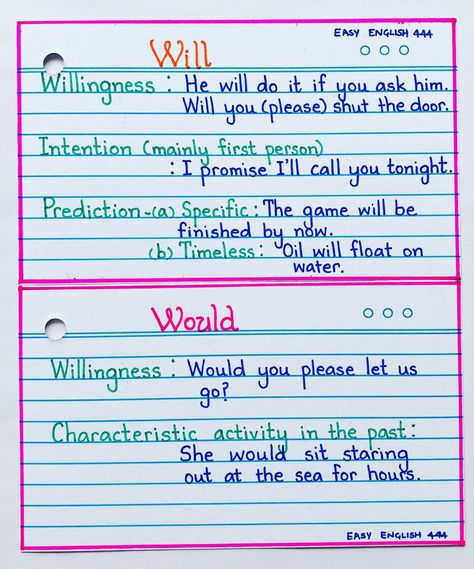 EASY ENGLISH 444
Will
Willingness : He will do it if you ask him.
Will you (please) shut the door.
Intention (mainly first person)
: I promise I'll call you tonight.
Prediction - (a) Specific : The game will be
finished by now.
(b) Timeless : Oil will float on
water.
Would
Willingness : Would you please let us
go?
Characteristic activity in the past :
She would sit staring
out at the sea for hours.
EASY ENGLISH 444